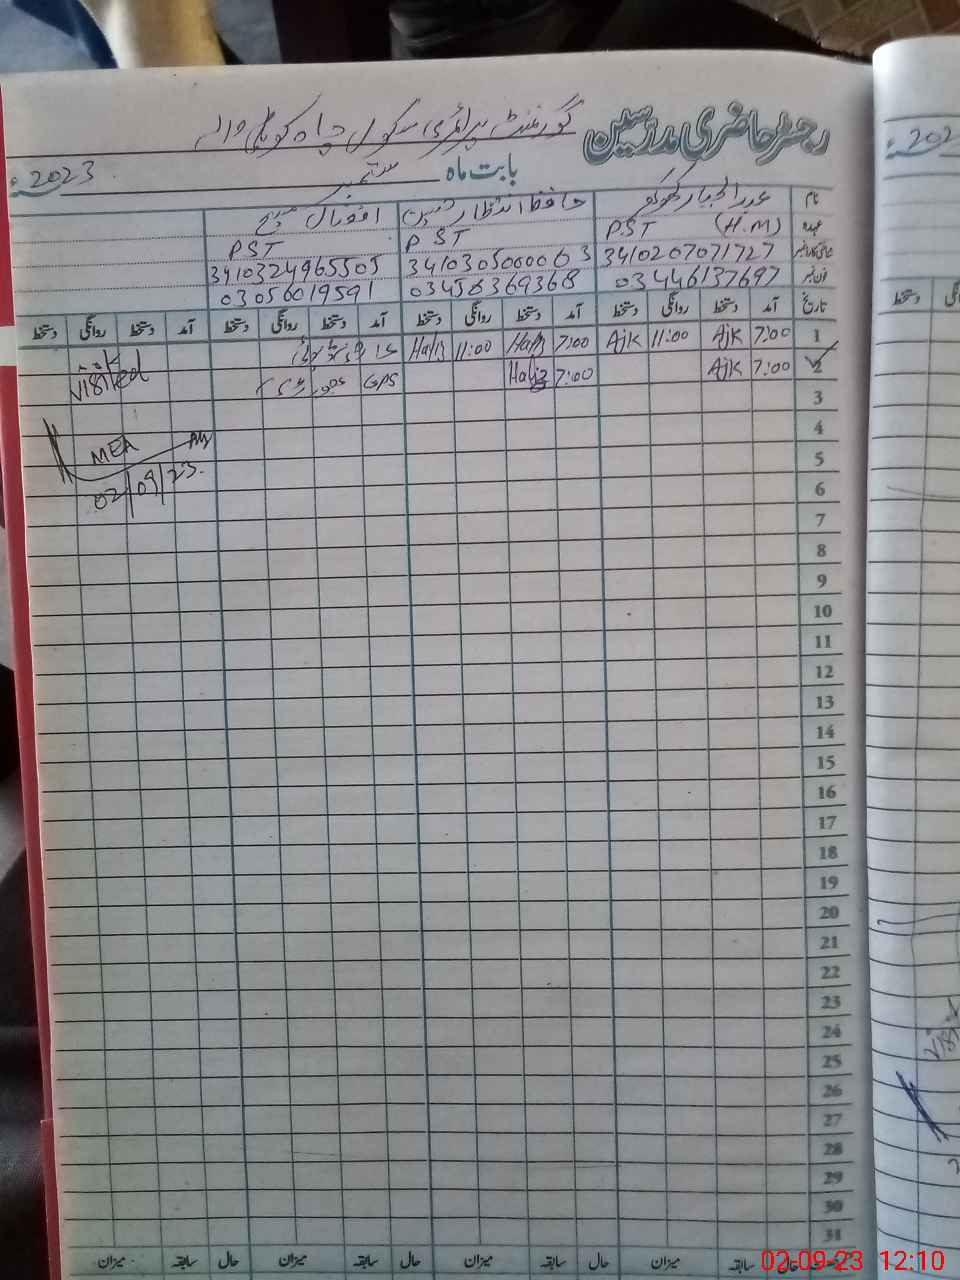 رجسٹر حاضری مدرسین گورنمنٹ پرائمری سکول چاہ کوٹلی والے
بابت ماہ ستمبر 2023ء
نام عبدالجبار کھوکھر حافظ انتظار حسین افضال مسیح
عہدہ P.S.T (H.M) PST PST
شناختی کارڈ نمبر 3410207071727 3410305000063 3410324965505
فون نمبر 03446137697 03456369368 03056019591
تاریخ آمد دستخط روانگی دستخط آمد دستخط روانگی دستخط آمد دستخط روانگی دستخط آمد دستخط روانگی دستخط
1 7:00 AJK 11:00 AJK 7:00 Hafiz 11:00 Hafiz
2 7:00 AJK 7:00 Hafiz GPS
Visited
3
4
MEA
5
02/09/23.
6
7
8
9
10
11
12
13
14
15
16
17
18
19
20
21
22
23
24
25
26
27
28
29
30
31
حال سابقہ میزان حال سابقہ میزان حال سابقہ میزان حال سابقہ میزان
02.09.23 12:10